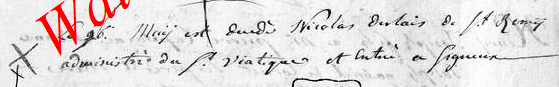 Le 26. May est decedé Nicolas Derlais de St Remy
administré du St viatique et Entré a Signeux